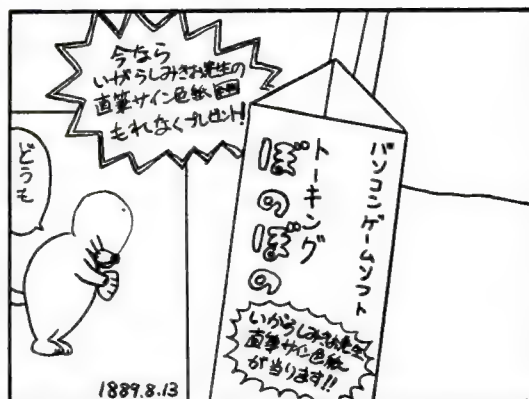 今なら
いがらしみきお先生の
直筆サイン色紙
もれなくプレゼント!
どうも
パソコンゲームソフト
トーキング
ぼのぼの
いがらしみきお先生
直筆サイン色紙
が当ります!!
1889.8.13